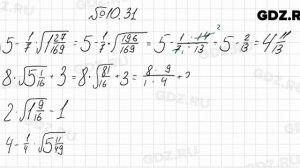 №10.31
GDZ.RU
5 - 1/7 √(1 27/169) = 5 - 1/7 · √(196/169) = 5 - (1 · 14)/(7 · 13) = 5 - 2/13 = 4 11/13
2
8 · √(5 1/16) + 3 = 8 · √(81/16) + 3 = (8 · 9)/(1 · 4) + 3
2 · √(1 9/16) - 1
4 - 1/4 · √(5 11/49)
GDZ.RU